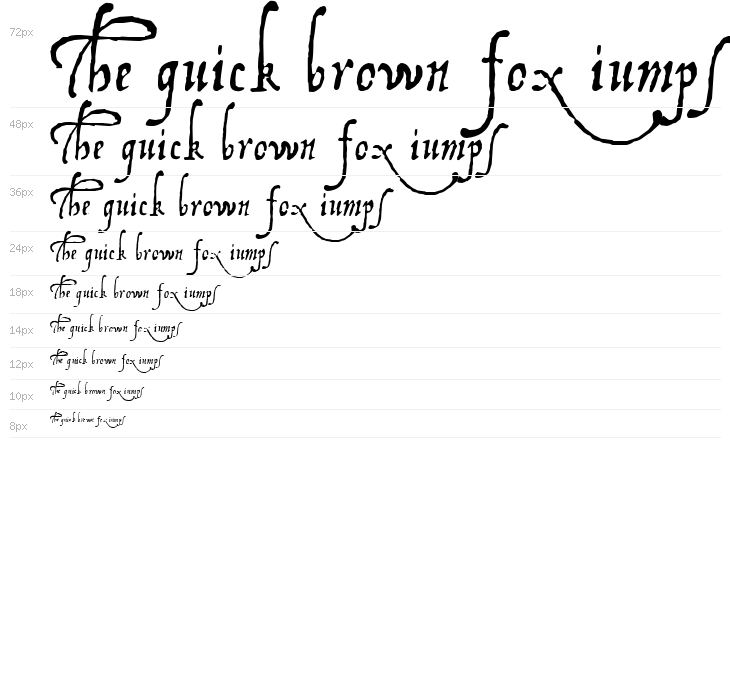 72px The quick brown fox iumps
48px The quick brown fox iumps
36px The quick brown fox iumps
24px The quick brown fox iumps
18px The quick brown fox iumps
14px The quick brown fox iumps
12px The quick brown fox iumps
10px The quick brown fox iumps
8px The quick brown fox iumps